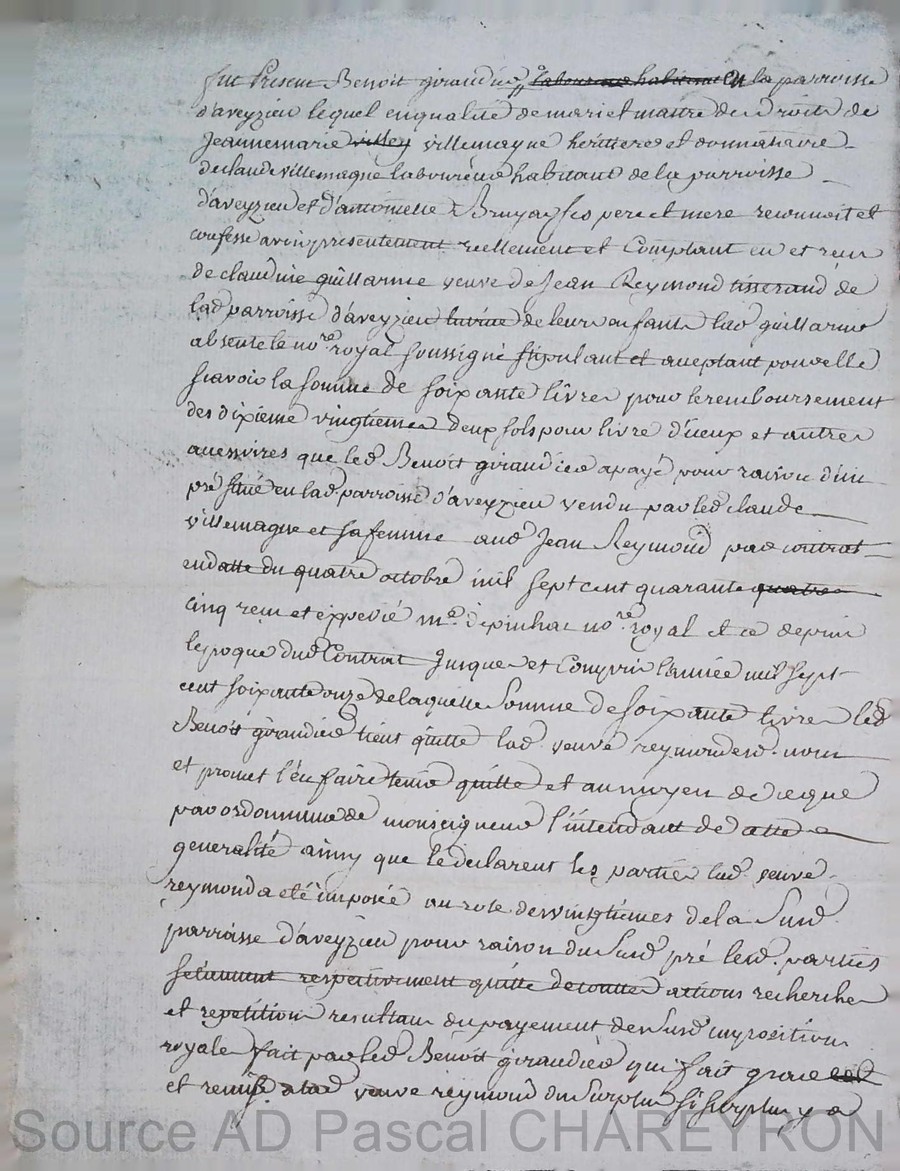 fut Present Benoit giraudier ~~laboureur habitant~~ de la parroisse
d'aveyzieu lequel en qualité de mari et maitre des droits de
Jeanne marie ~~villey~~ villemagne heritiere et donnataire
de claude villemagne laboureur habitant de la parroisse
d'aveyzieu et d'antoinette Bruyas ses pere et mere reconnoit et
confesse avoir presentement reellement et Comptant eu et receu
de claudine guillarme veuve de Jean Reymond tisserand de
lad. parroisse d'aveyzieu tutrice de leurs enfants lad. guillarme
absente le no.re royal soussigné stipulant et acceptant pour elle
scavoir la somme de soixante livres pour le remboursement
des dixieme vingtiemes deux sols pour livre d'iceux et autres
accessoires que led. Benoit giraudier a payé pour raison d'un
pré situé en lad. parroisse d'aveyzieu vendu par led. claude
villemagne et sa femme aud. Jean Reymond par contrat
en datte du quatre octobre mil sept cent quarante ~~quatre~~
cinq receu et expedié m.e d'epinhac no.re royal et ce depuis
l'epoque dud. Contrat Jusques et Compris l'année mil sept
cent soixante onze de laquelle somme de soixante livres led.
Benoit giraudier tient quitte lad. veuve reymond esd. noms
et promet l'en faire tenir quitte et au moyen de ce que
par ordonnance de monseigneur l'intendant de cette
generalité ainsy que le declarent les parties lad. veuve
reymond a eté imposée au role des vingtiemes de la Susd.
parroisse d'aveyzieu pour raison du Susd. pré lesd. parties
se tiennent respectivement quitte de toutes actions recherches
et repetitions resultant du payement des Susd. impositions
royales fait par led. Benoit giraudier qui fait grace
et remise a lad. veuve reymond du Surplus si surplus y a
Source AD Pascal CHAREYRON